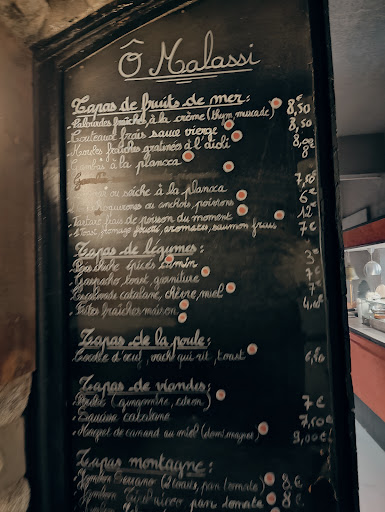 Ô Malassi
Tapas de fruits de mer:
Palourdes fraîches à la crème (thym, muscade) 8,50
Couteaux frais sauce vierge 8,50
Moules fraîches gratinées à l'aïoli 8,00
à la plancca 8
ou sèche à la planxa 7,50
ou anchois, poivrons 6€
Tartare frais de poisson du moment 12€
Toast fromage tomates, saumon fumé 7€
Tapas de légumes:
Pois chiche épicés cumin 3€
Gaspacho, toast, garniture 7€
Escalivade catalane, chèvre, miel 7€
Frites fraîches maison
Tapas de la poule:
Cocotte d'œuf, vach qui rit, toast 6,50
Tapas de viandes:
Poulet (gingembre, citron) 7€
catalane 7,00€
Magret de canard au miel (demi magret) 9,00€
Tapas montagne:
Jambon Serrano (2 toasts, pan tomate) 8€
Jambon pan tomate 8€